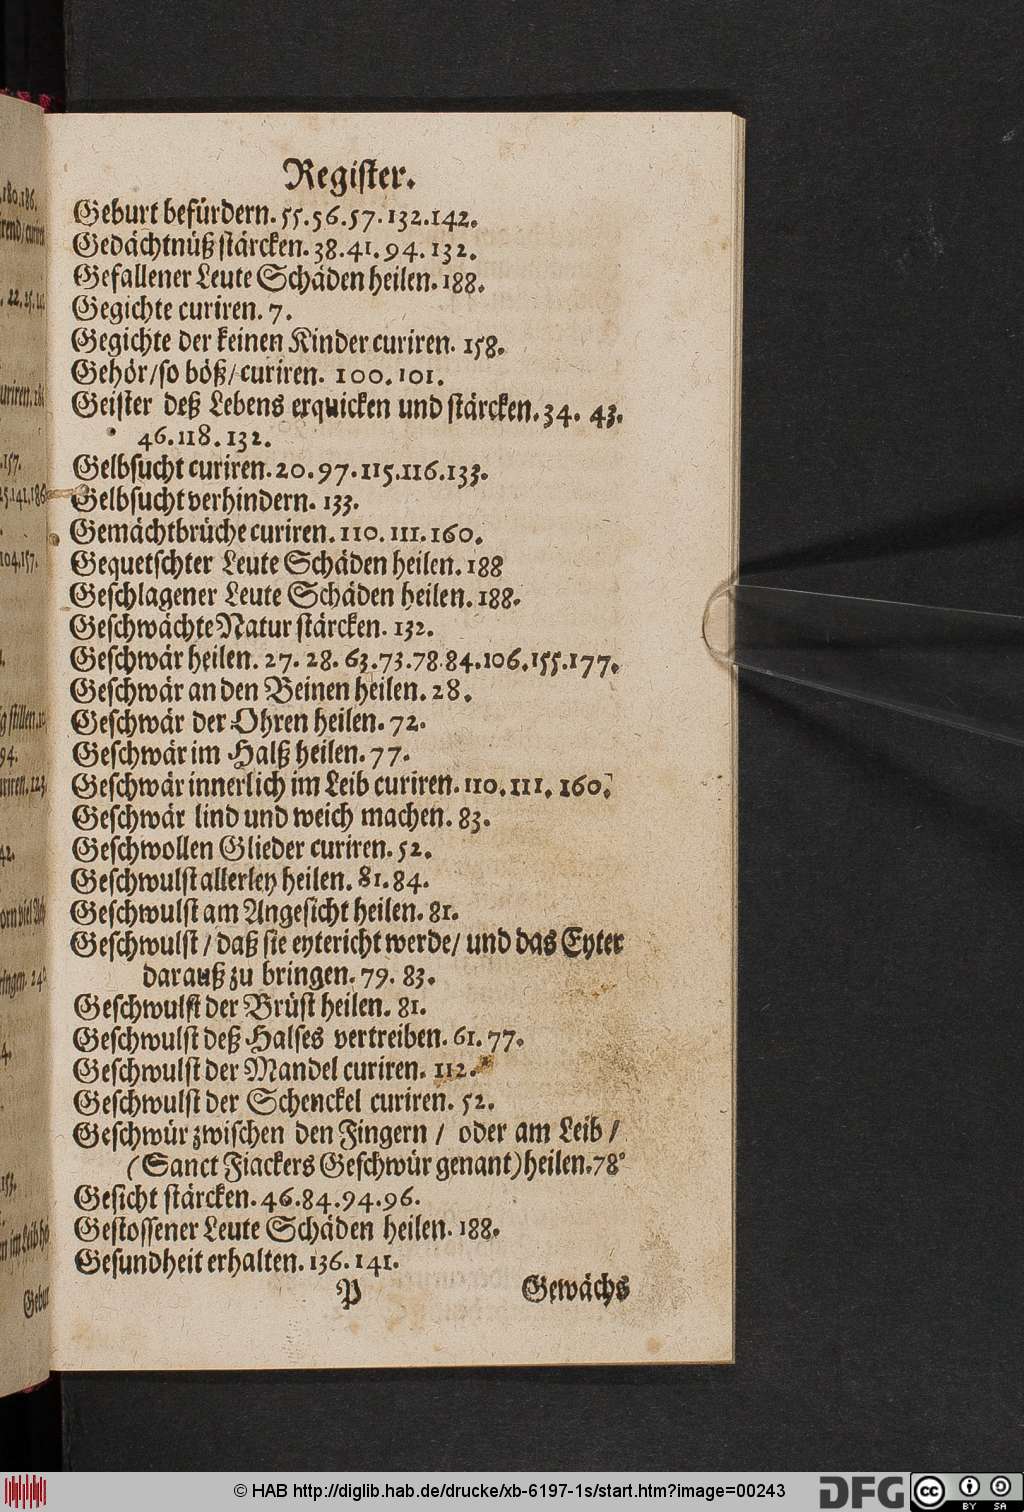 Register.
Geburt befürdern. 55. 56. 57. 132. 142.
Gedächtnüß stärcken. 38. 41. 94. 132.
Gefallener Leute Schäden heilen. 188.
Gegichte curiren. 7.
Gegichte der keinen Kinder curiren. 158.
Gehör/ so böß/ curiren. 100. 101.
Geister deß Lebens erquicken und stärcken. 34. 43.
46. 118. 132.
Gelbsucht curiren. 20. 97. 115. 116. 133.
Gelbsucht verhindern. 133.
Gemächtbrüche curiren. 110. 111. 160.
Gequetschter Leute Schäden heilen. 188
Geschlagener Leute Schäden heilen. 188.
Geschwächte Natur stärcken. 132.
Geschwär heilen. 27. 28. 63. 73. 78. 84. 106. 155. 177.
Geschwär an den Beinen heilen. 28.
Geschwär der Ohren heilen. 72.
Geschwär im Halß heilen. 77.
Geschwär innerlich im Leib curiren. 110. 111. 160.
Geschwär lind und weich machen. 83.
Geschwollen Glieder curiren. 52.
Geschwulst allerley heilen. 81. 84.
Geschwulst am Angesicht heilen. 81.
Geschwulst/ daß sie eytericht werde/ und das Eyter
darauß zu bringen. 79. 83.
Geschwulst der Brüst heilen. 81.
Geschwulst deß Halses vertreiben. 61. 77.
Geschwulst der Mandel curiren. 112.
Geschwulst der Schenckel curiren. 52.
Geschwür zwischen den Fingern/ oder am Leib/
(Sanct Fiackers Geschwür genant) heilen. 78.
Gesicht stärcken. 46. 84. 94. 96.
Gestossener Leute Schäden heilen. 188.
Gesundheit erhalten. 136. 141.
P Gewächs
© HAB http://diglib.hab.de/drucke/xb-6197-1s/start.htm?image=00243
DFG
cc BY SA